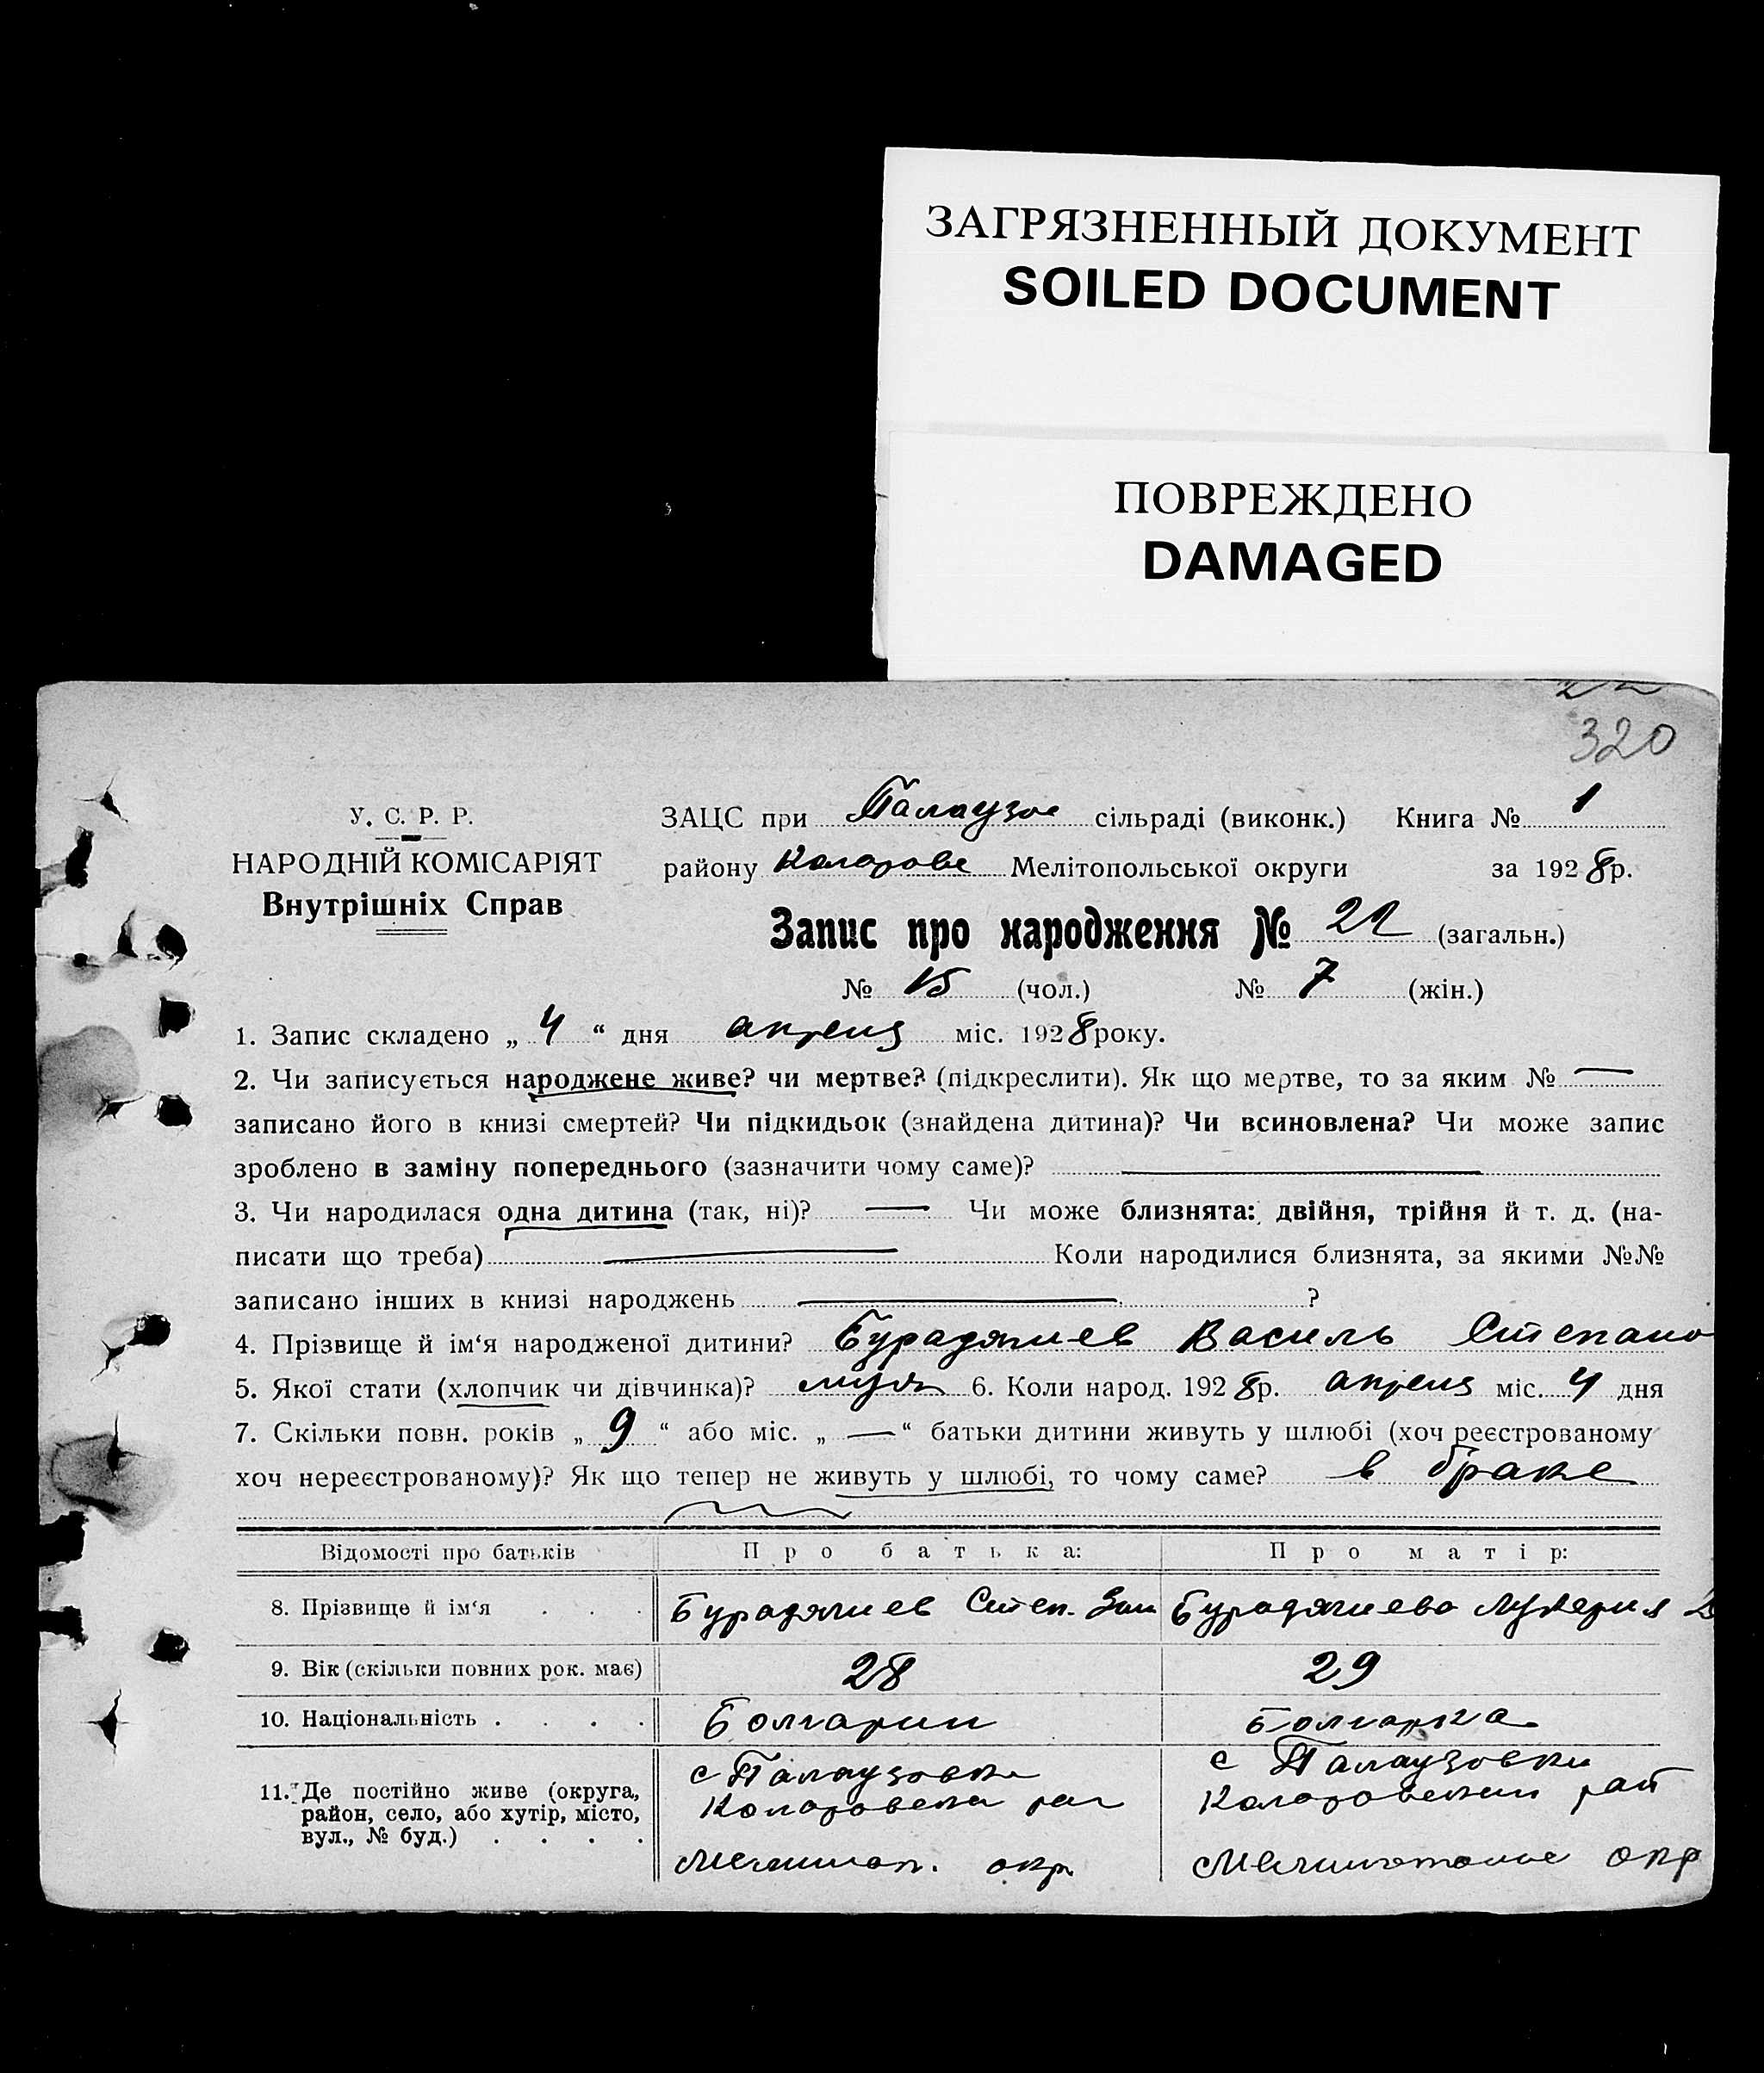 ЗАГРЯЗНЕННЫЙ ДОКУМЕНТ
SOILED DOCUMENT
ПОВРЕЖДЕНО
DAMAGED
320
У. С. Р. Р.
НАРОДНІЙ КОМІСАРІЯТ
Внутрішніх Справ
ЗАЦС при Палаузов сільраді (виконк.) Книга № 1
району Коларове Мелітопольської округи за 1928 р.
Запис про народження № 22 (загальн.)
№ 15 (чол.) № 7 (жін.)
1. Запис складено „ 4 “ дня апреля міс. 1928 року.
2. Чи записується народжене живе? чи мертве? (підкреслити). Як що мертве, то за яким № —
записано його в книзі смертей? Чи підкидьок (знайдена дитина)? Чи всиновлена? Чи може запис
зроблено в заміну попереднього (зазначити чому саме)? —
3. Чи народилася одна дитина (так, ні)? — Чи може близнята: двійня, трійня й т. д. (на-
писати що треба) — Коли народилися близнята, за якими №№
записано інших в книзі народжень — ?
4. Прізвище й ім‘я народженої дитини? Бурадячиев Василь Степано
5. Якої стати (хлопчик чи дівчинка)? муж 6. Коли народ. 1928 р. апреля міс. 4 дня
7. Скільки повн. років „ 9 “ або міс. „ — “ батьки дитини живуть у шлюбі (хоч реєстрованому
хоч нереєстрованому)? Як що тепер не живуть у шлюбі, то чому саме? в браке
Відомості про батьків Про батька: Про матір:
8. Прізвище й ім‘я . . . Бурадячиев Степ. Бурадячиева Лукерия
9. Вік (скільки повних рок. має) 28 29
10. Національність . . . . Болгарин Болгарка
11. Де постійно живе (округа, район, село, або хутір, місто, вул., № буд.) . . . .
с Палаузовка с Палаузовки
Коларовски рай Коларовский рай
Мелитоп. окр Мелитопольс окр